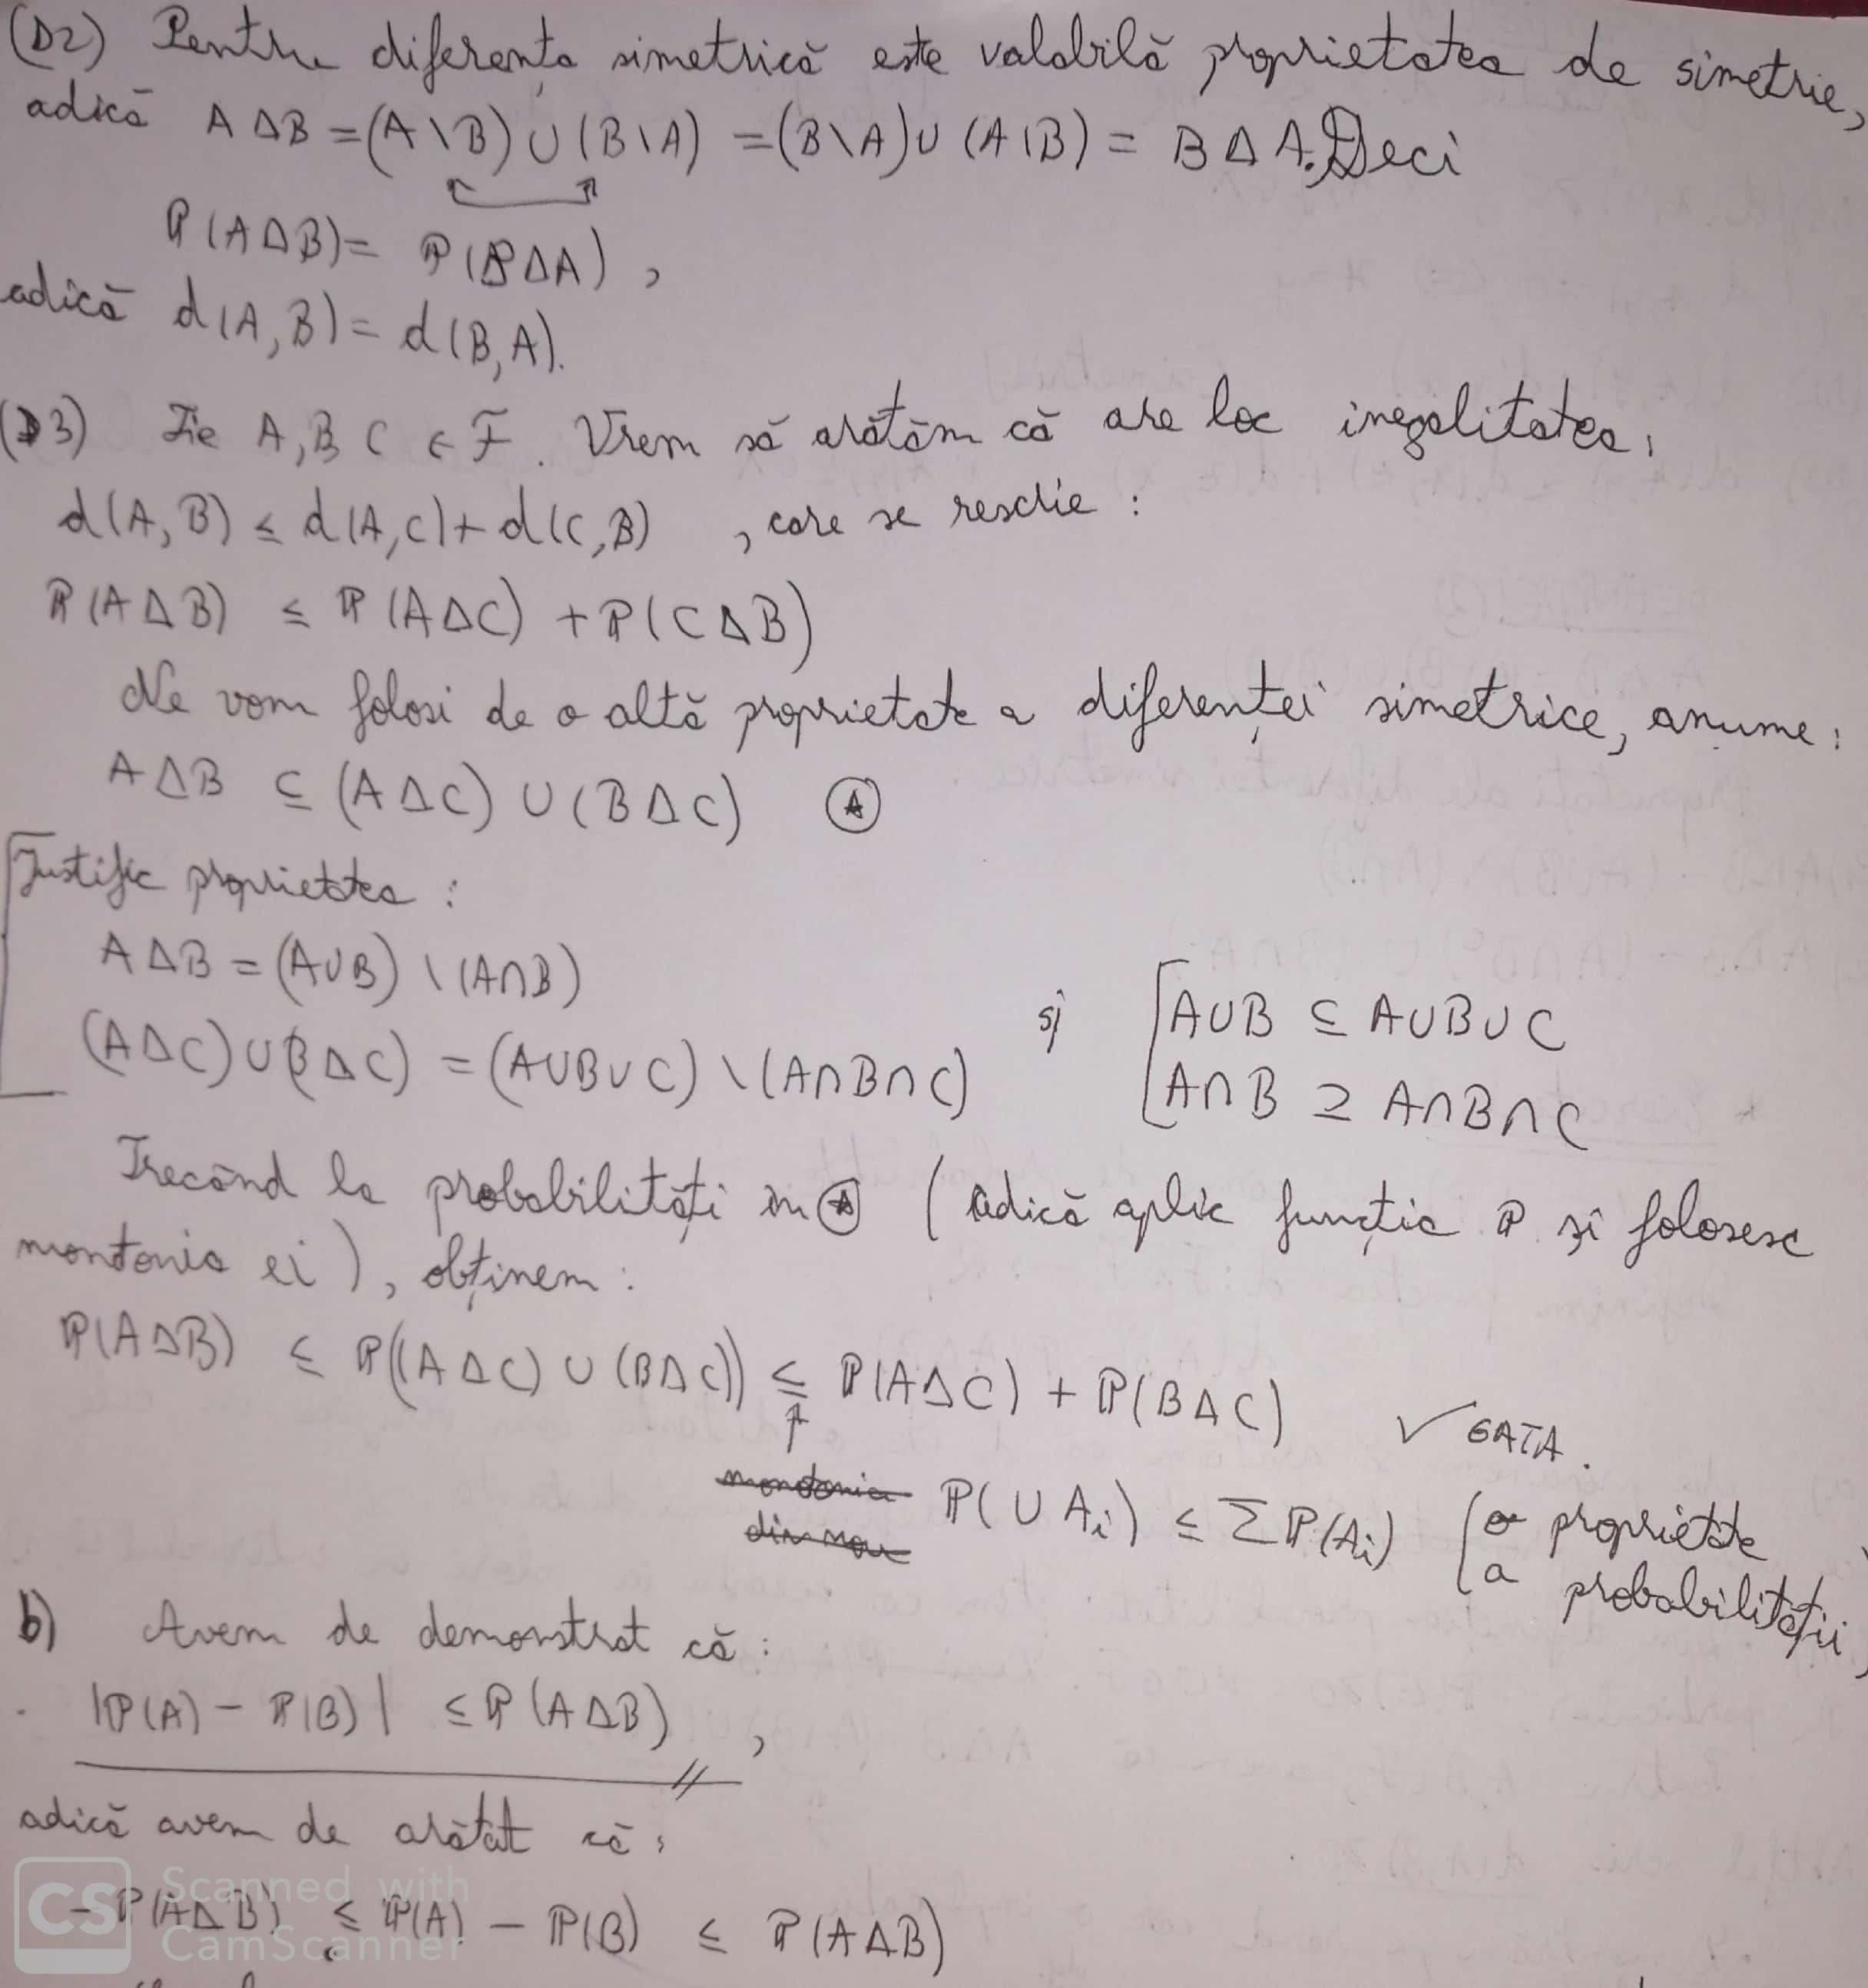 (D2) Pentru diferența simetrică este valabilă proprietatea de simetrie,
adică A Δ B = (A \ B) ∪ (B \ A) = (B \ A) ∪ (A \ B) = B Δ A. Deci
ℙ(A Δ B) = ℙ(B Δ A),
adică d(A, B) = d(B, A).
(D3) Fie A, B C ∈ F. Vrem să arătăm că are loc inegalitatea:
d(A, B) ≤ d(A, C) + d(C, B), care se rescrie:
ℙ(A Δ B) ≤ ℙ(A Δ C) + ℙ(C Δ B)
Ne vom folosi de o altă proprietate a diferenței simetrice, anume:
A Δ B ⊆ (A Δ C) ∪ (B Δ C) Ⓐ
Justific proprietatea:
A Δ B = (A ∪ B) \ (A ∩ B)
(A Δ C) ∪ (B Δ C) = (A ∪ B ∪ C) \ (A ∩ B ∩ C) și [ A ∪ B ⊆ A ∪ B ∪ C
A ∩ B ⊇ A ∩ B ∩ C
Trecând la probabilități în Ⓐ (adică aplic funcția ℙ și folosesc
monotonia ei), obținem:
ℙ(A Δ B) ≤ ℙ((A Δ C) ∪ (B Δ C)) ≤ ℙ(A Δ C) + ℙ(B Δ C) ✓ GATA.
monotonia din nou
ℙ(∪ Ai) ≤ Σ ℙ(Ai) (o proprietate
a probabilității)
b) Avem de demonstrat că:
|ℙ(A) - ℙ(B)| ≤ ℙ(A Δ B),
adică avem de arătat că:
- ℙ(A Δ B) ≤ ℙ(A) - ℙ(B) ≤ ℙ(A Δ B)
CS Scanned with
CamScanner